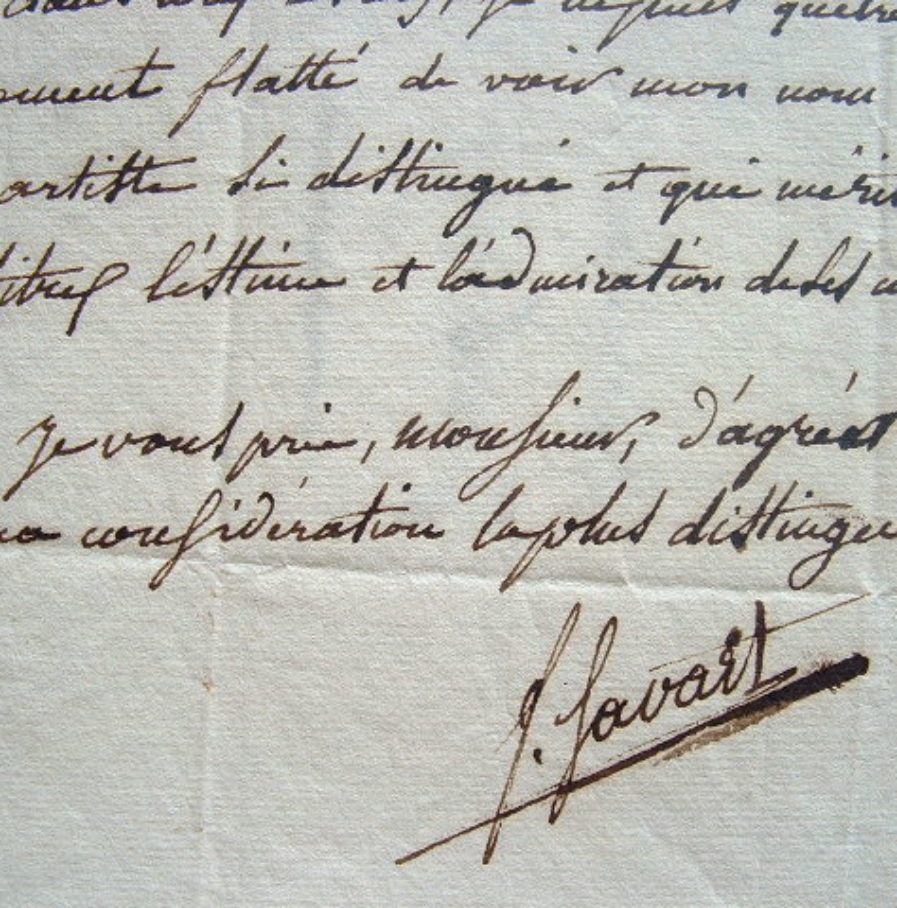 ement flatté de voir mon nom
artiste si distingué et qui mérit
titres l'éstime et l'admiration de ses
Je vous prie, monsieur, d'agréer
ma considération la plus distingue
f. Savart